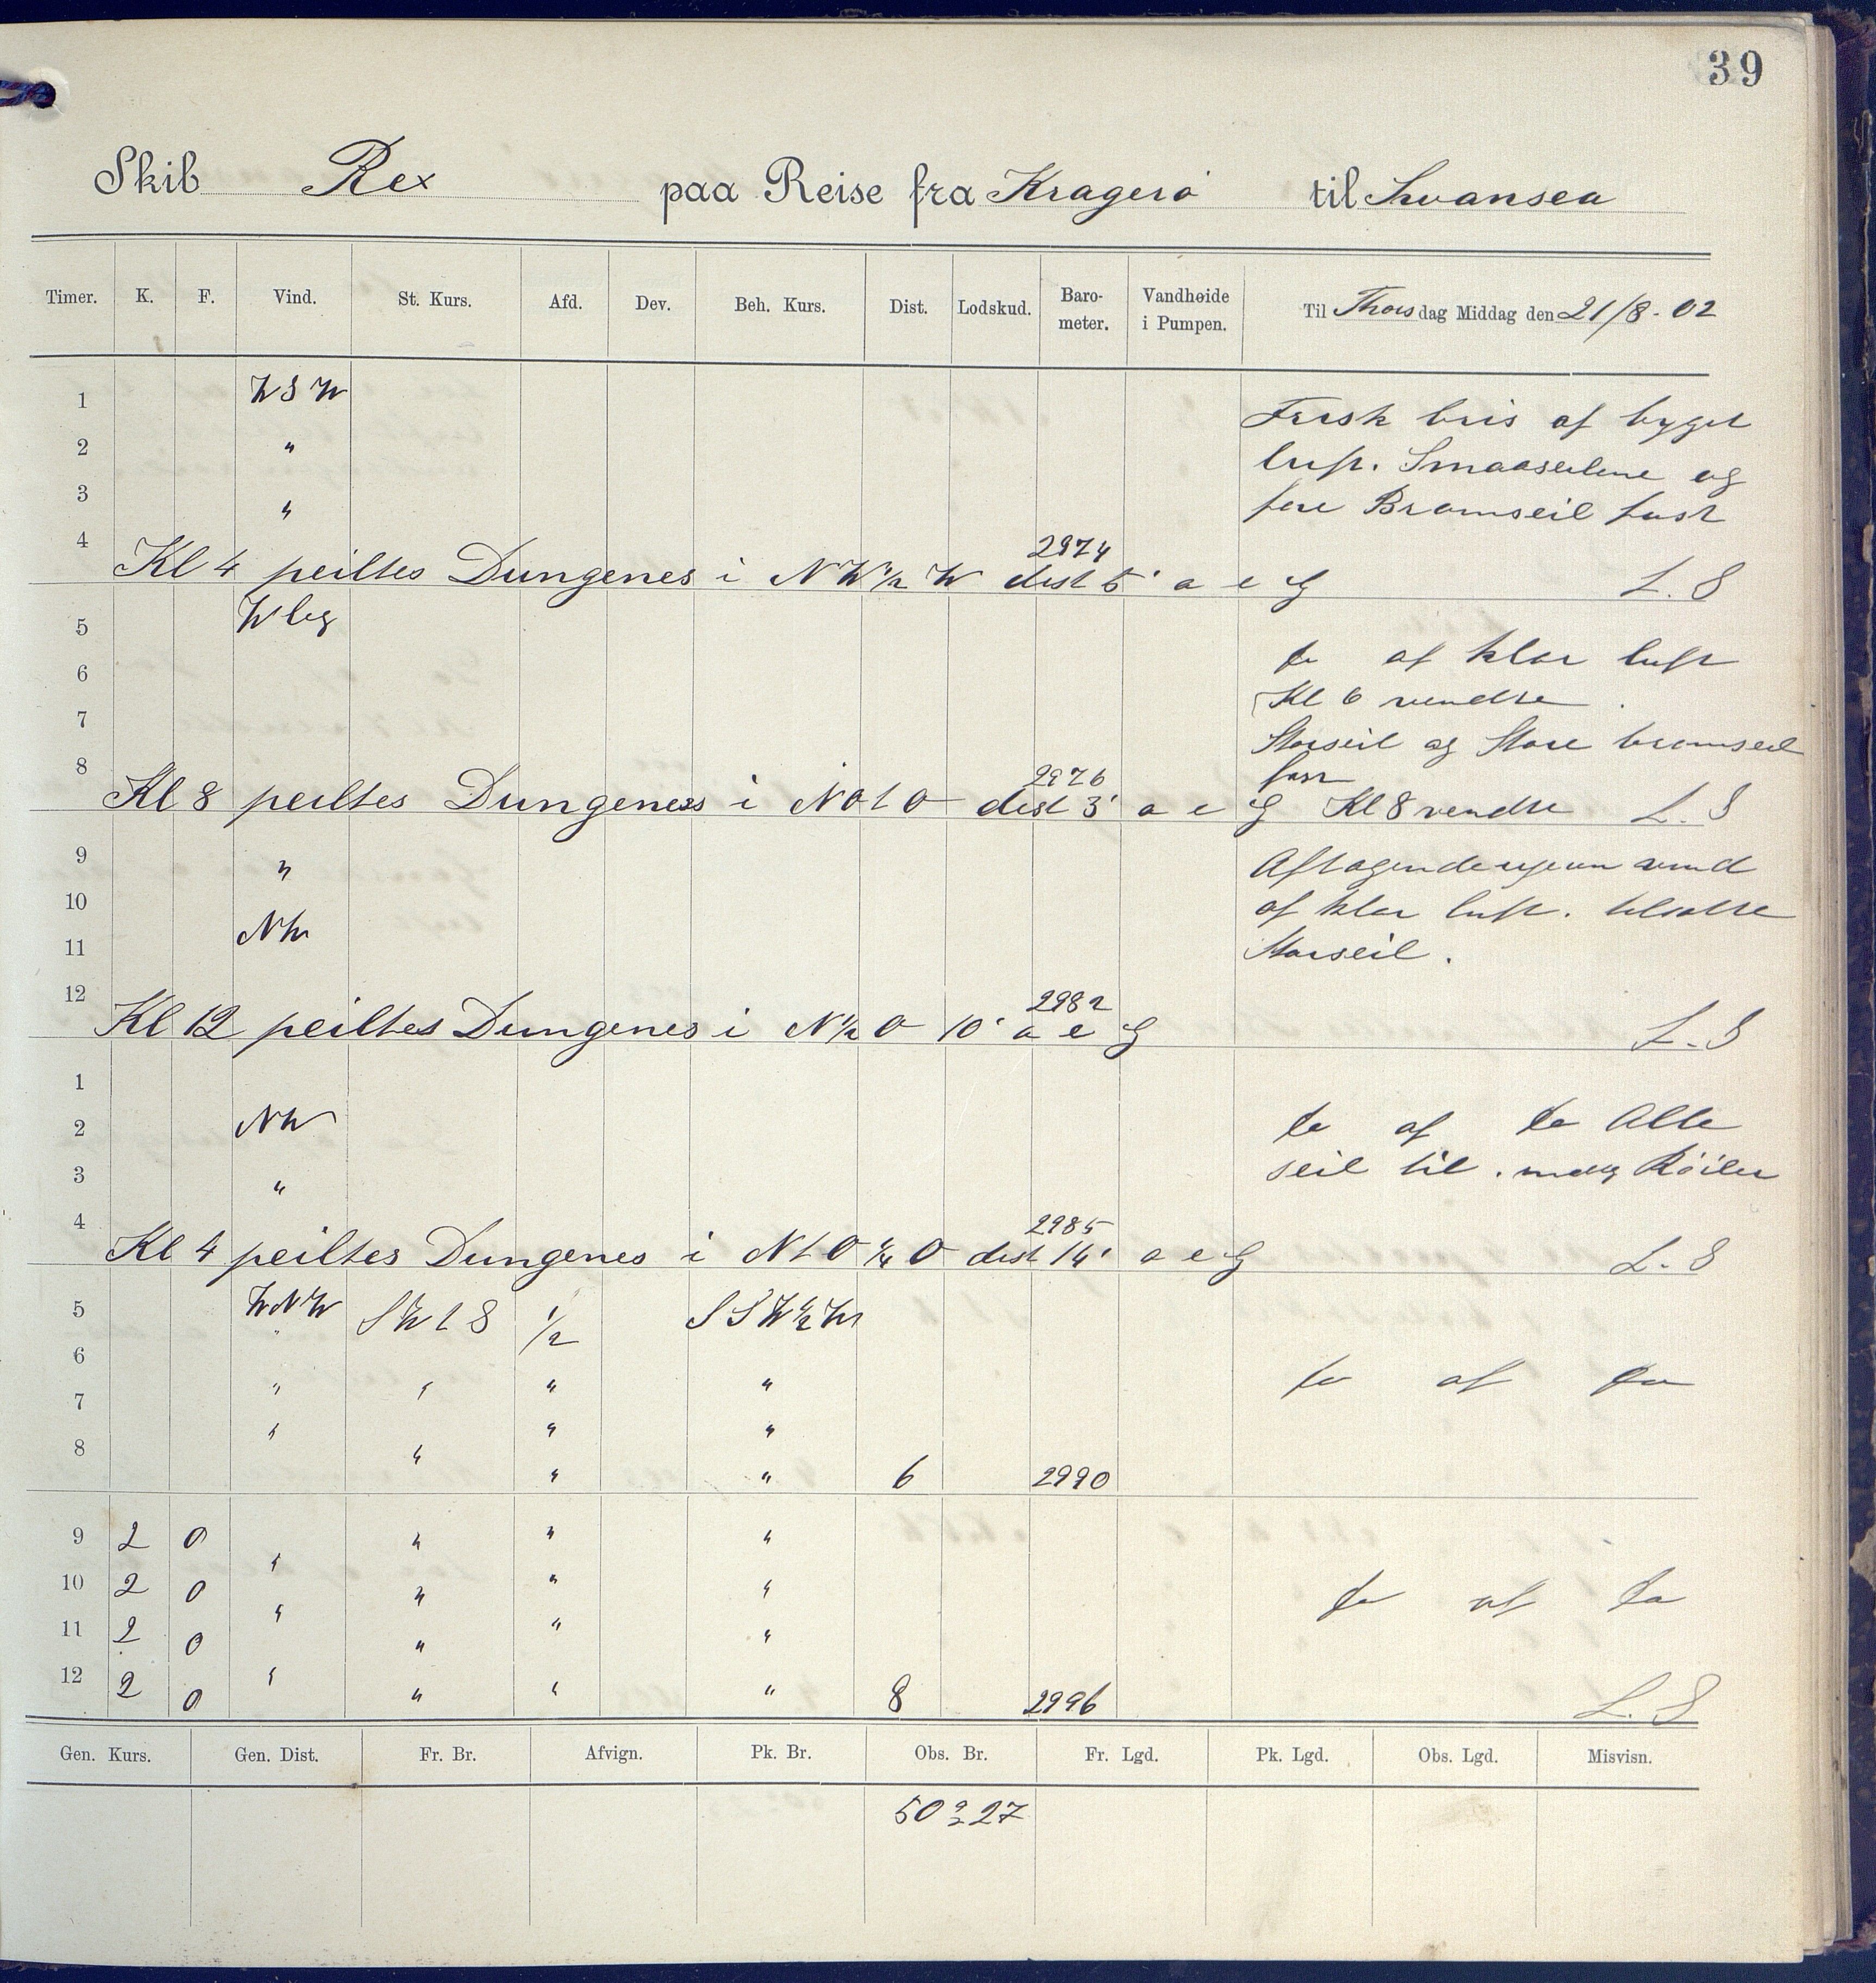 39
Skib Rex paa Reise fra Kragerø til Swansea
Timer. K. F. Vind. St. Kurs. Afd. Dev. Beh. Kurs. Dist. Lodskud. Baro-meter. Vandhøide i Pumpen. Til Thorsdag Middag den 21/8-02
1 WSW Frisk bris af byget
2 " luft. Smaaseilene og
3 " fore Bramseil fast
4 2974
Kl 4 peiltes Dungenes i NW½W dist 5' a e G L.S
5 W leg
6 do af klar luft
Kl 6 vendte
7 Storseil og Store bramseil
8 2976 fast
Kl 8 peiltes Dungeness i NOtO dist 3' a e G Kl 8 vendte L.S
9 " Aftagende ujevn vind
10 af klar luft. tilsatte
11 NW Storseil.
12 2982
Kl 12 peiltes Dungenes i N½O 10' a e G L.S
1
2 NW do af do Alle
3 " seil til. Røiler
4 2985
Kl 4 peiltes Dungenes i NtO¼O dist 14' a e G L.S
5 WNW SWtS ½ SSW½W
6 " " " " do af do
7 " " " "
8 " " 6 2990
9 2 0 " " " "
10 2 0 " " " " do af do
11 2 0 " " "
12 2 0 " " " " 8 2996 L.S
Gen. Kurs. Gen. Dist. Fr. Br. Afvign. Pk. Br. Obs. Br. Fr. Lgd. Pk. Lgd. Obs. Lgd. Misvisn.
50° 27